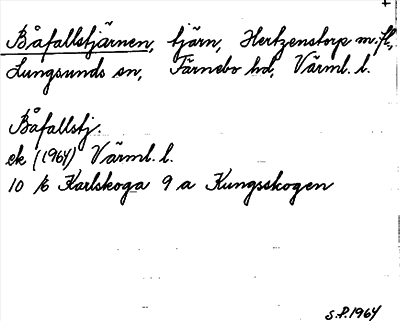 +
Båfallstjärnen, tjärn, Hertzenstorp m.fl.,
Lungsunds sn, Färnebo hd, Värml. l.
Båfallstj.
ek (1964) Värml. l.
10 /6 Karlskoga 9 a Kungsskogen
S.P. 1964